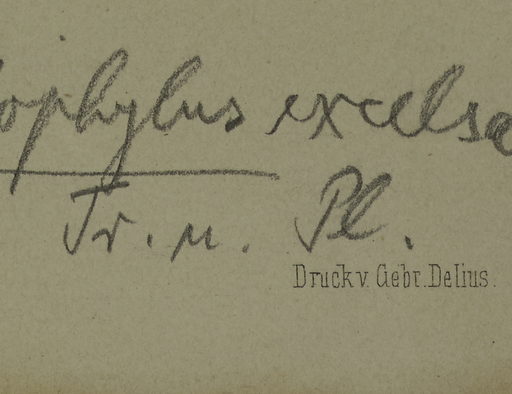 ophylus excelsa
Tr. u. Pl.
Druck v. Gebr. Delius.